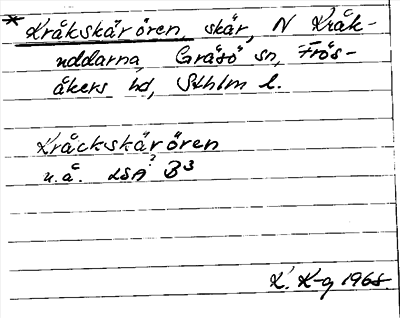 * Kråkskärören, skär, N Kråk-
uddarna, Gräsö sn, Frös-
åkers hd, Sthlm l.
Kråckskärören
u.å. LSA B³
K. K-g 1968.